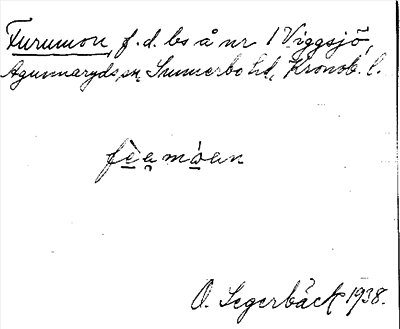 Furumon, f.d. bs å nr 1 Viggsjö,
Agunnaryds sn, Sunnerbo hd, Kronob. l.
O. Segerbäck 1938.